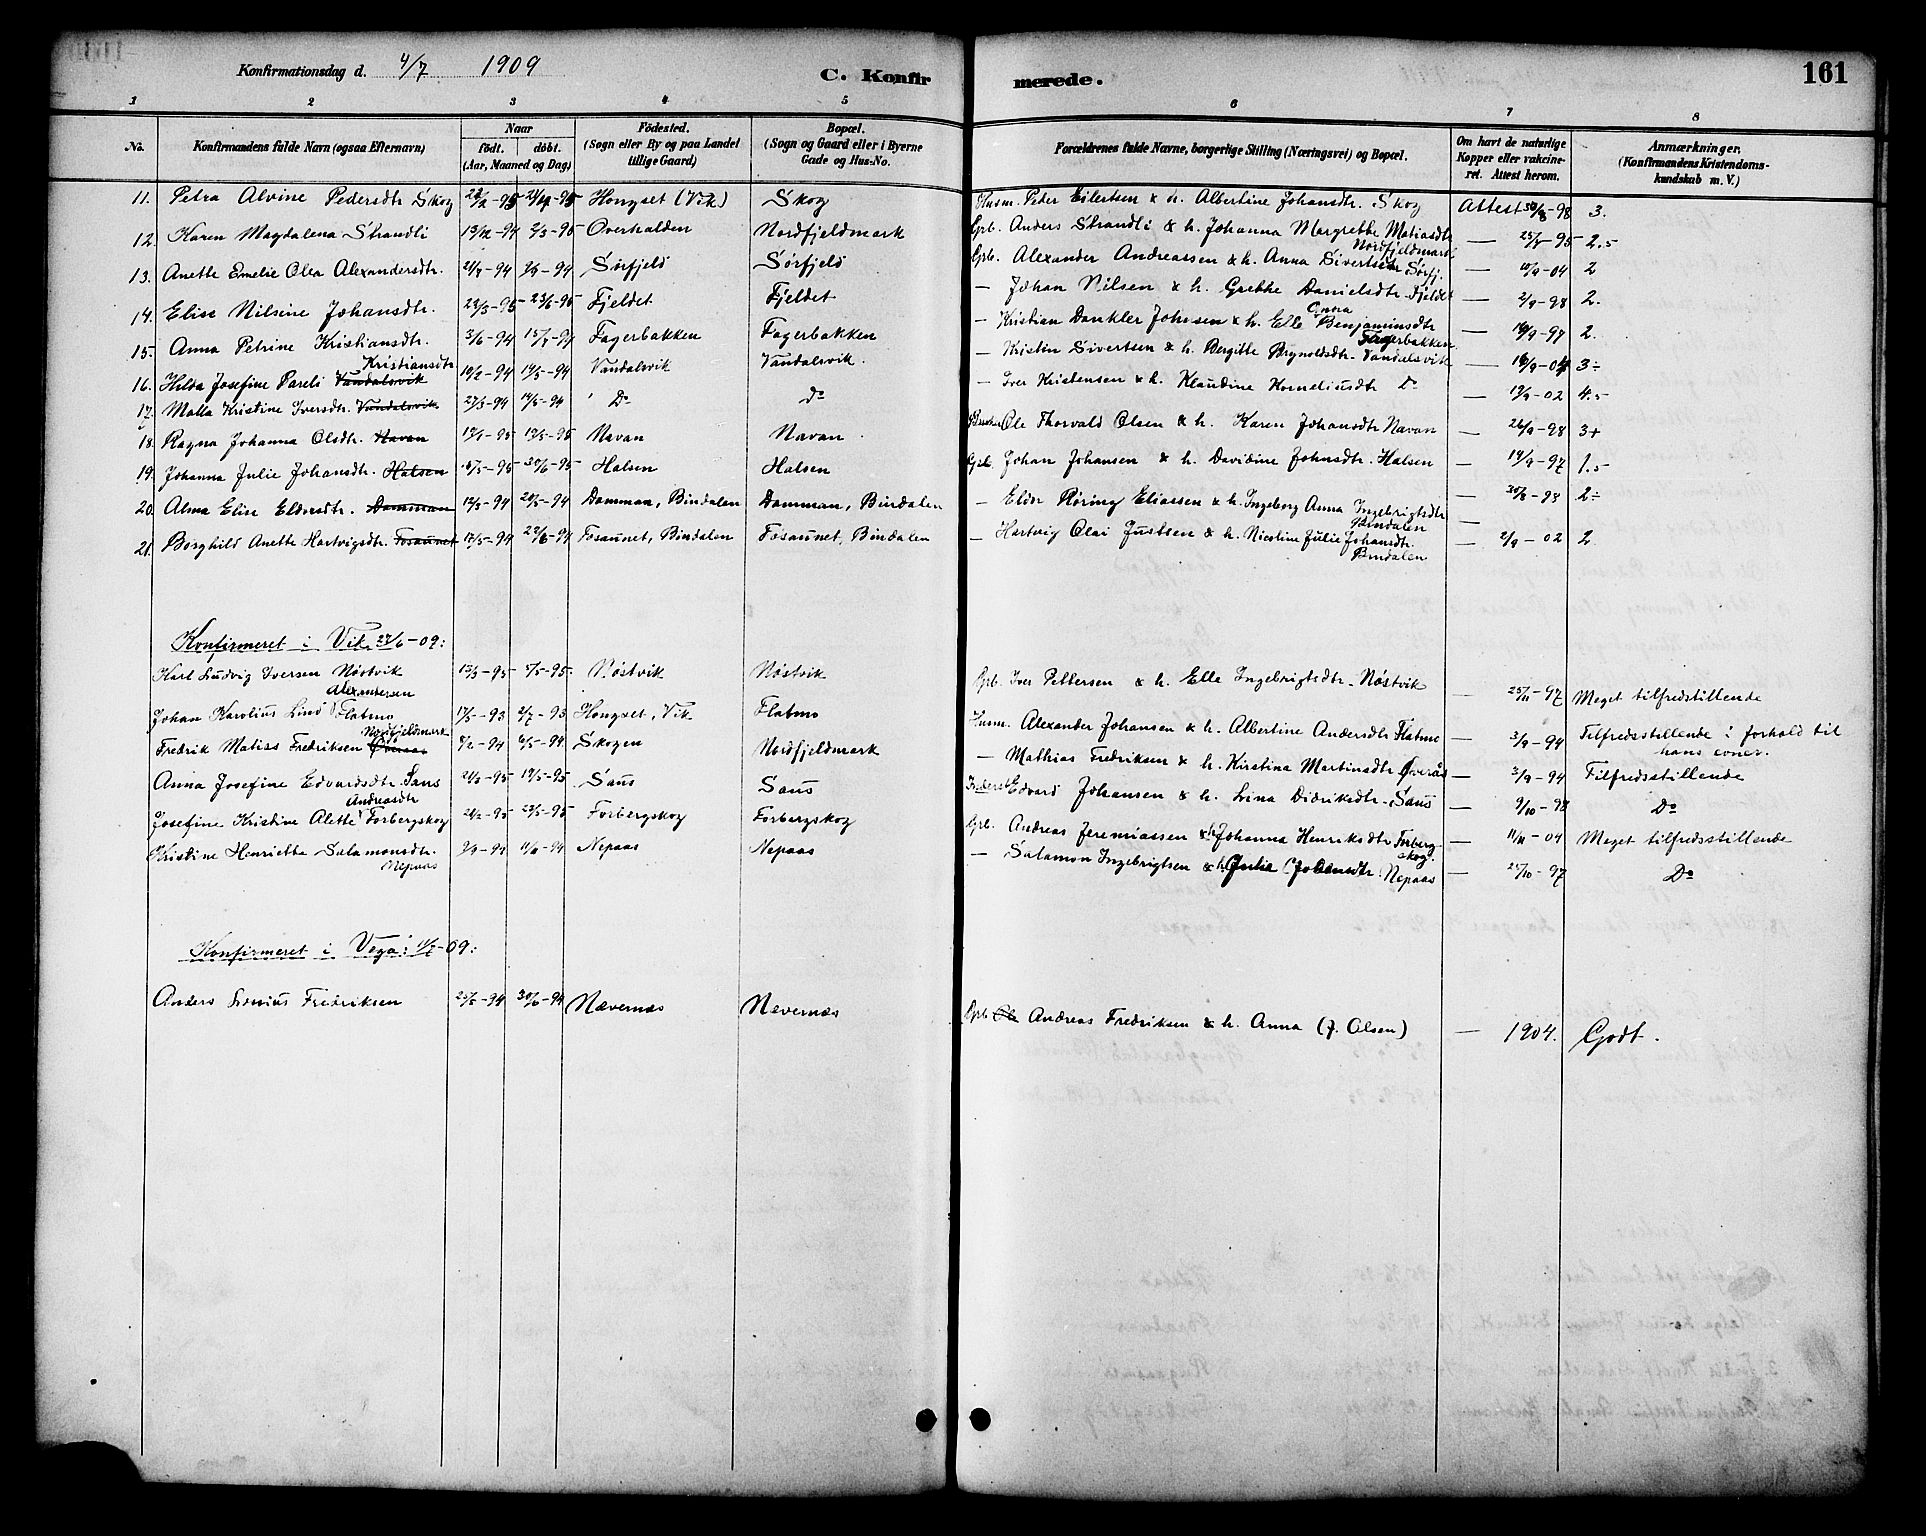 Konfirmationsdag d. 4/7 1909 C. Konfirmerede. 161
1 2 3 4 5 6 7 8
No. Konfirmandens fulde Navn (ogsaa Efternavn) Naar födt. döbt. (Aar, Maaned og Dag) Födested. (Sogn eller By og paa Landet tillige Gaard) Bopæl. (Sogn og Gaard eller i Byerne Gade og Hus-No.) Forældrenes fulde Navne, borgerlige Stilling (Næringsvei) og Bopæl. Om havt de naturlige Kopper eller vakcineret. Attest herom. Anmærkninger, (Konfirmandens Kristendomskundskab m. V.)
11. Petra Alvine Pedersdtr Skog Hongset (Vik) Skog Husm. Peter Eilertsen & h. Albertine Johansdtr. Skog Attest 3.
12. Karen Magdalena Strandli 13/12-94 Overhalden Nordfjeldmark Gpb. Anders Strandli & h. Johanna Margrethe Matiasdtr Nordfjeldmark — 2.
13. Anette Emelie Olea Alexandersdtr. Sörfjeld Sörfjeld Gpb. Alexander Andreassen & h. Anna Sivertsdtr Sörfj. — 2
14. Elise Nilsine Johansdtr. 23/3-95 23/6-95 Fjeldet Fjeldet — Johan Nilsen & h. Grethe Danielsdtr. Fjeldet — 2/9-98 2.
15. Anna Petrine Kristiansdtr. 3/6-94 15/7-94 Fagerbakken Fagerbakken — Kristian Dankler Johnsen & h. Elle Anna Benjaminsdtr Fagerbakken — 2.
16. Hilda Josefine Pareli Kristiansdtr Vandalsvik 10/2-94 Vandalsvik Vandalsvik. — Kristen Sivertsen & h. Bergitte Brynoldsdtr. Vandalsvik — 3÷
17. Malla Kristine Iversdtr. Vandalsvik 27/3-94 14/5-94 Do do — Iver Kristensen & h. Klaudine Korneliusdtr do — 4.
18. Ragna Johanna Olsdtr. Navan Navan Navan. Ole Thorvald Olsen & h. Karen Johansdtr Navan — 26/9-98 3+
19. Johanna Julie Johansdtr. Halsen Halsen Halsen Gpb. Johan Johansen & h. Davidine Johnsdtr. Halsen — 14/9-97 1.
20. Alma Elise Eldorsdtr. Damman Damman, Bindalen Damman, Bindalen — Eldor Röring Eliassen & h. Ingeborg Anna Ingebrigtsdtr Bindalen — 2÷
21. Borghild Anette Hartvigsdtr. Fosaunet 17/5-94 Fosaunet, Bindalen Fosaunet, Bindalen — Hartvig Olai Justsen & h. Nicoline Julie Johansdtr. Bindalen — 2/9-02 2.
Konfirmeret i Vik 27/6-09:
Karl Ludvig Iversen Nöstvik Nöstvik Nöstvik Gpb. Iver Pettersen & h. Elle Ingebrigtsdtr. Nöstvik — 25/11-97 Meget tilfredstillende
Johan Karolius Lind Alexandersen Flatmo 17/5-93 2/7-93 Hongset, Vik Flatmo Husm. Alexander Johansen & h. Albertine Andersdtr Flatmo — 3/9-94 Tilfredsstillende i forhold til hans evner.
Fredrik Matias Fredriksen Nordfjeldmark Skogen Nordfjeldmark — Mathias Fredriksen & h. Kirstina Martinsdtr Överås — 3/9-94 Tilfredsstillende
Anna Josefine Edvardsdtr. Saus Saus Saus Edvard Johansen & h. Lina Didriksdtr. Saus — 9/10-98 Do
Josefine Kristine Alette Andreasdtr Forbergskog Forbergskog Forbergskog Gpb. Andreas Jeremiassen & h. Johanna Henriksdtr Forbergskog. — 11/11-04 Meget tilfredsstillende
Kristine Henriette Salamonsdtr. Nepaas Nepaas Nepaas — Salamon Ingebrigtsen & h. Julie Johansdtr. Nepaas — Do
Konfirmeret i Vega: -09:
Anders Fredriksen Nævernæs Nævernæs Gpb. Andreas Fredriksen & h. Anna (f. Olsen) — 1904. Godt.